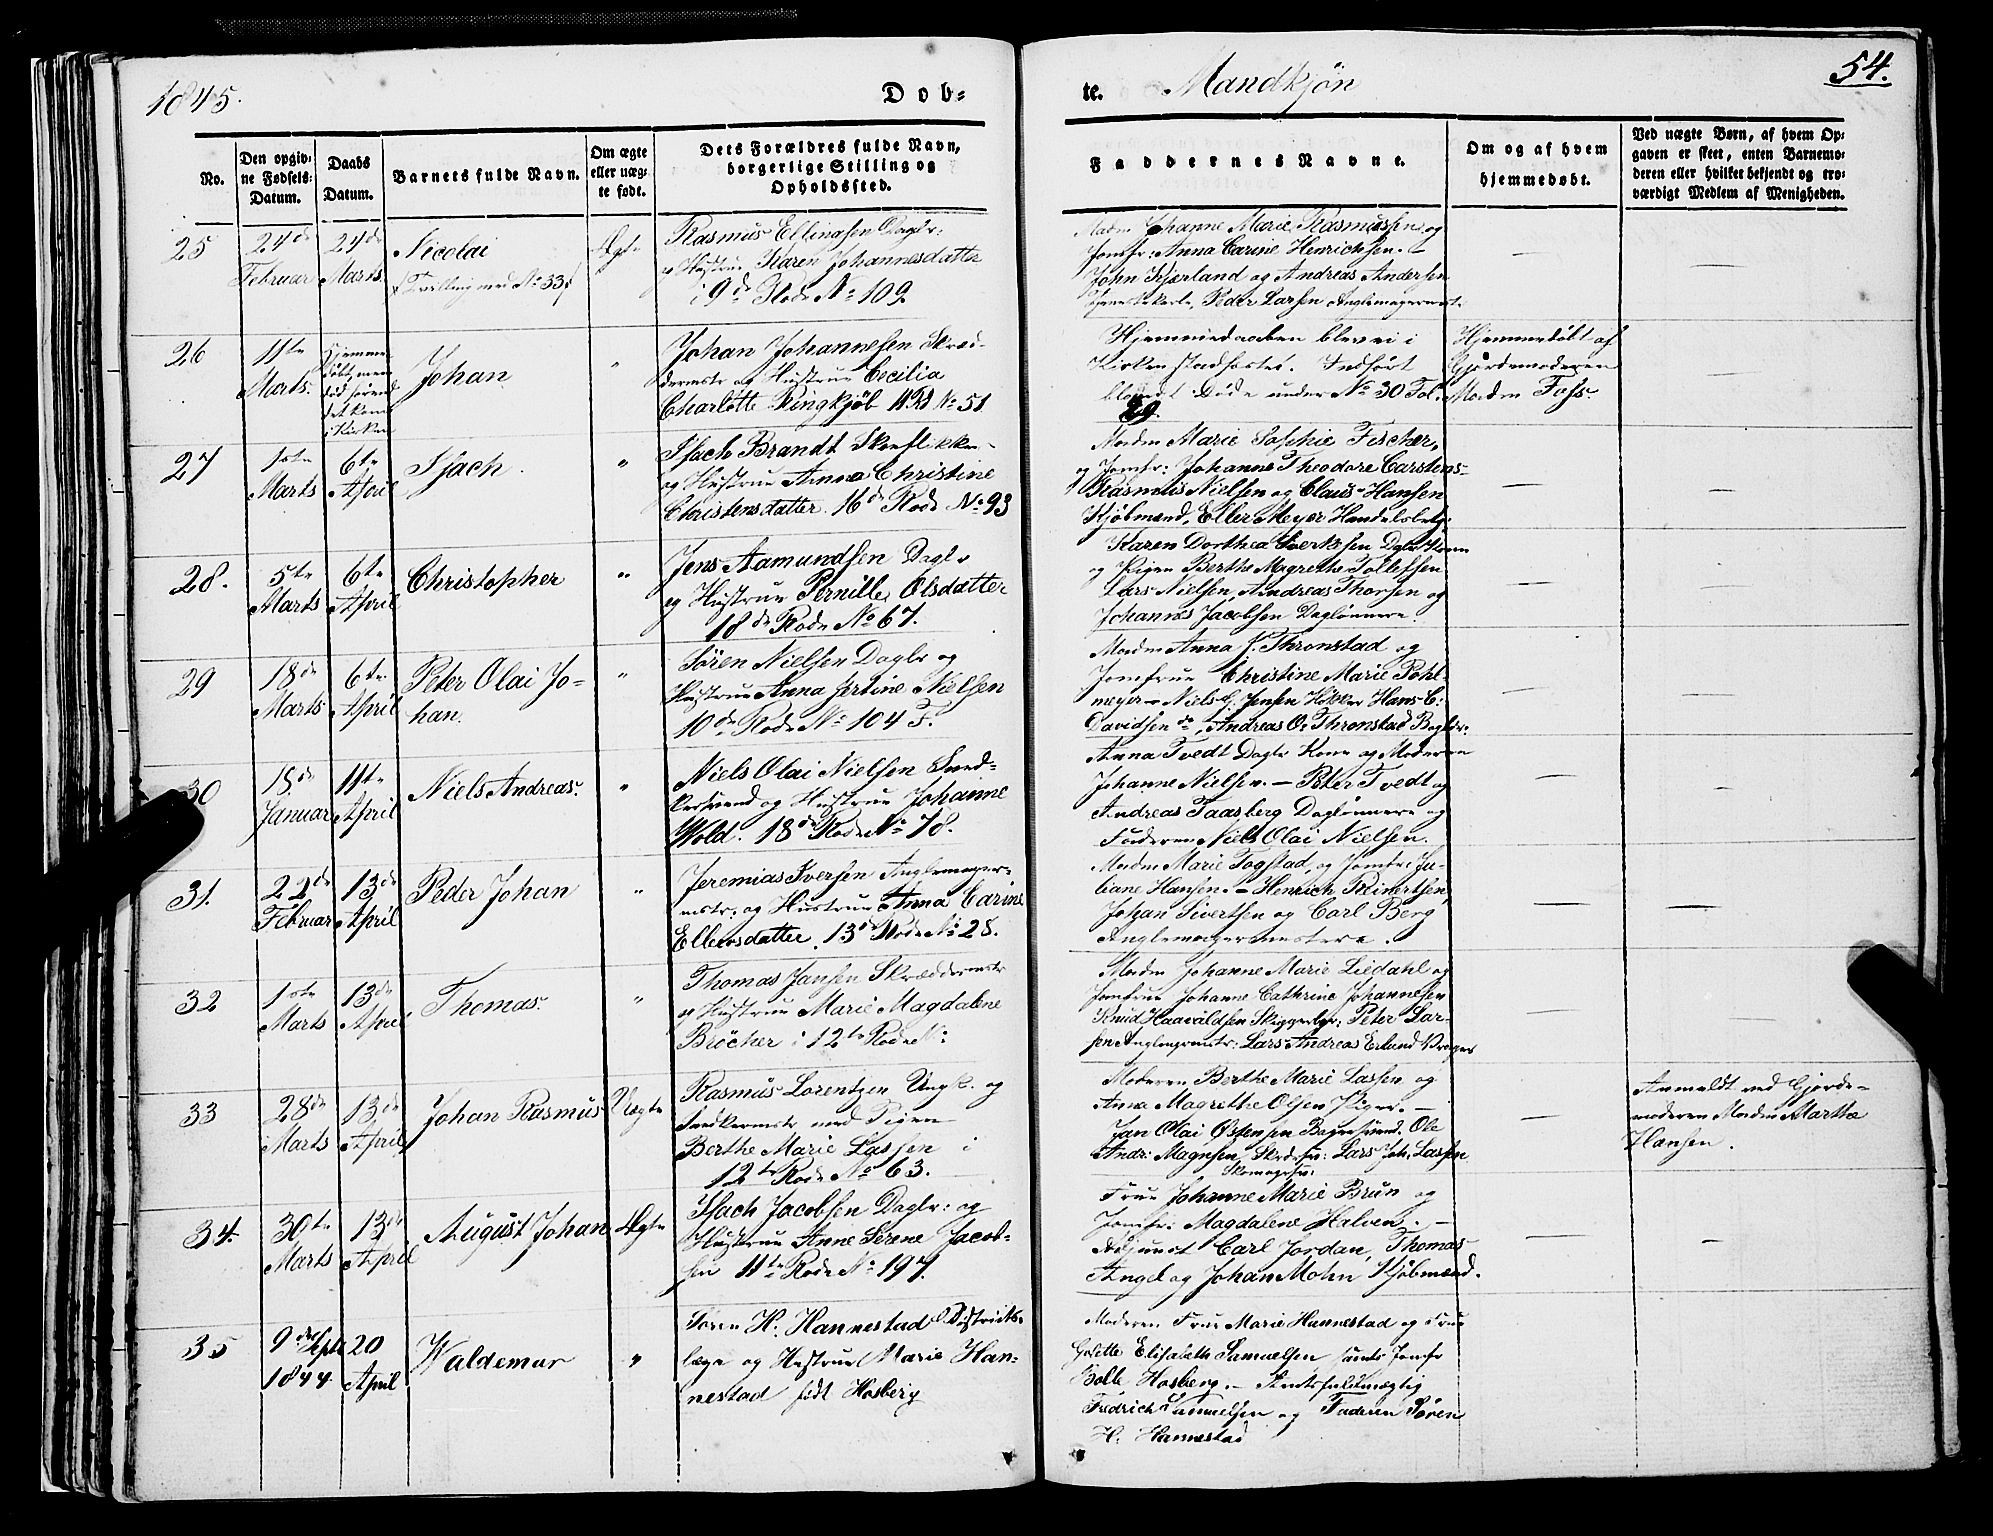 1845.
Døb-
te. Mandkjøn
54.
No.
Den opgiv-
ne Fødsels-
Datum.
Daabs
Datum.
Barnets fulde Navn.
Om ægte
eller uæg-
te født.
Dets Forældres fulde Navn,
borgerlige Stilling og
Opholdssted.
Faddernes Navne.
Om og af hvem
hjemmedøbt.
Ved uægte Børn, af hvem Op-
gaven er skeet, enten Barnemo-
deren eller hvilket bekjendt og tro-
værdigt Medlem af Menigheden.
25
24de
Februar
24de
Marts
Nicolai
(Tvilling med No 33)
Ægte
Rasmus Ellingsen Daglr:
og Hustrue Karen Johannesdatter
i 9de Rode No 109.
Madm Johanne Marie Rasmussen og
Jomfr: Anna Carine Henrichsen. -
John Kjerland og Andreas Andersen
Tjenestekarle, Peder Larsen Anglemagermest.
26
11te
Marts.
Hjemme-
døbt, men
død føren
det kom
i Kirken
Johan
"
Johan Johannesen Skræd-
dermstr og Hustrue Cecilia
Charlotte Ringkjøb 11 Rd No 51
Hjemmedaaben blev ei i
Kirken stadfæstet. Indført
blandt Døde under No 30 Fol.
29.
Hjemmedøbt af
Gjordemoderen
Madm Foss.
27
1ste
Marts
6te
April
Isach.
"
Isach Brandt Skoeflikker
og Hustrue Anna Christine
Christensdatter. 16de Rode No 93
Madm Marie Sophie Fischer,
og Jomfr: Johanne Theodore Carstens-
Rasmus Nielsen og Claus Hansen
Kjøbmænd, Eller Meyer Handelsbetj:
28.
5te
Marts
6te
April
Christopher
"
Jens Aamundsen Daglr
og Hustrue Pernille Olsdatter
18de Rode No 67.
Karen Dorthea Sverkesen Daglr Kone
og Pigen Berthe Magrethe Tollefsen
Lars Nielsen, Andreas Thorsen og
Johannes Jacobsen Daglønnere.
29
18de
Marts
6te
April
Peter Olai Jo-
han.
"
Søren Nielsen Daglr og
Hustrue Anna Jertine Nielsen
10de Rode No 104 F.
Madm Anna J. Thronstad og
Jomfrue Christine Marie Pohl-
meyer - Niels C. Jensen Høkker Hans C:
Davidsen do, Andreas O. Thronstad Bogbdr.
30
15de
Januar
11te
April
Niels Andreas.
"
Niels Olai Nielsen Sned-
kersvend og Hustrue Johanne
Wold. 18de Rode No 78.
Anna Tvedt Daglr Kone og Moderen
Johanne Nielsen. - Peter Tvedt og
Andreas Taasberg Daglønnere og
Faderen Niels Olai Nielsen.
31.
22de
Februar
13de
April
Peder Johan
"
Jeremias Iversen Anglemager-
mstr: og Hustrue Anna Carine
Ellersdatter. 13de Rode No 28.
Madm Marie Togstad, og Jomfr Ju-
liane Hansen. - Henrich Reinertsen,
Johan Sivertsen og Carl Berg
Anglemagermestere.
32
1ste
Marts
13de
April
Thomas.
"
Thomas Jansen Skræddermstr
og Hustrue Marie Magdalene
Bröcher i 12te Rode No
Madm Johanne Marie Liedahl og
Jomfrue Johanne Cathrine Johannesen
Knud Haavaldsen Skippertyr: Peter Lar-
sen Anglmgrmstr: Lars Andreas Erlund Vrager
33
28de
Marts
13de
April
Johan Rasmus
Uægte
Rasmus Lorentzen Ungk. og
Snedkermstr med Pigen
Berthe Marie Lassen i
12te Rode No 63.
Moderen Berthe Marie Lassen og
Anna Magrethe Olsen Piger. -
Jan Olai Østensen Bagersvend. Ole
Andr: Magnsen Skrdsv: Lars Joh. Lassen
Skomagersv:
Anmeldt ved Gjorde-
moderen Madm Martha
Hansen.
34.
30te
Marts
13de
April
August Johan
Ægte
Isach Jacobsen Daglr: og
Hustrue Anne Serene Jacob-
sen 11te Rode No 197.
Frue Johanne Marie Brun og
Jomfr: Magdalene Halven. -
Adjunct Carl Jordan, Thomas
Angel og Johan Mohn Kjøbmænd.
35
9de Septr
1844
20
April
Waldemar
"
Søren H. Hannestad Districts-
læge og Hustrue Marie Han-
nestad født Hosberg
Moderen Frue Marie Hannestad og Frue
Elisabeth Samuelsen samt Jomfr
Bolle Hosberg. - Amtsfuldmægtig
Fredrich Samuelsen og Faderen Søren
H. Hannestad